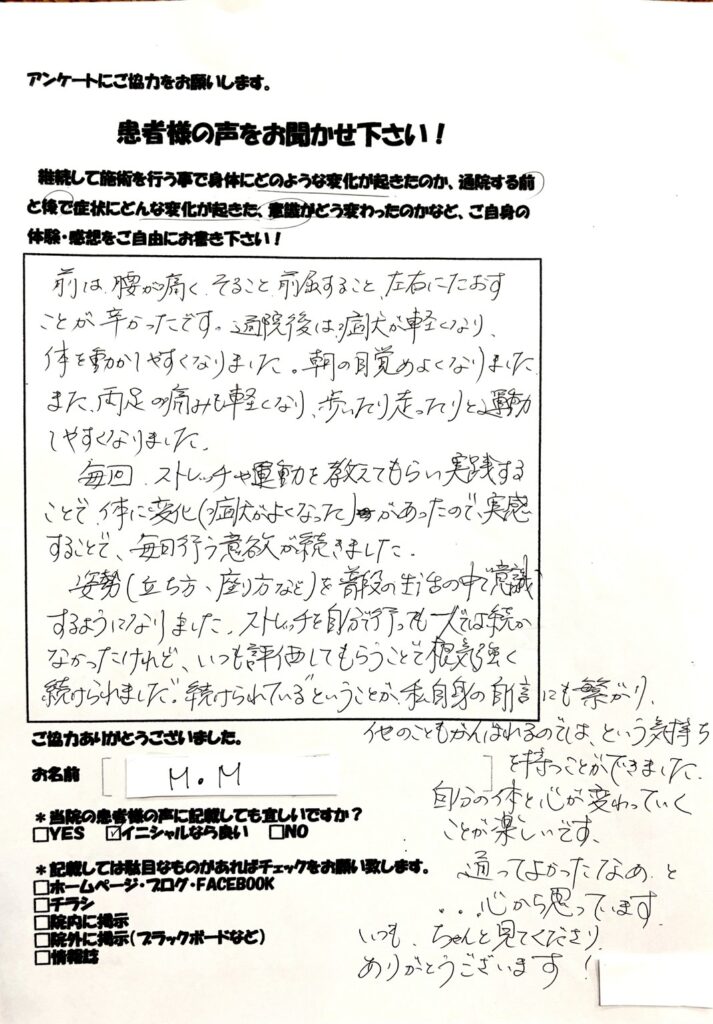 アンケートにご協力をお願いします。
患者様の声をお聞かせ下さい！
継続して施術を行う事で身体にどのような変化が起きたのか、通院する前
と後で症状にどんな変化が起きた、意識がどう変わったのかなど、ご自身の
体験・感想をご自由にお書き下さい！
前は、腰が痛く、そること、前屈すること、左右にたおす
ことが辛かったです。通院後は、症状が軽くなり、
体を動かしやすくなりました。朝の目覚めよくなりました
また、両足の痛みも軽くなり、歩いたり走ったりと運動
しやすくなりました。
毎回、ストレッチや運動を教えてもらい実践する
ことで、体に変化(症状がよくなった)があったので、実感
することで、毎日行う意欲が続きました。
姿勢(立ち方、座り方など)を普段の生活の中で意識
するようになりました。ストレッチを自分で行っても一人では続か
なかったけれど、いつも評価してもらうことで根気強く
続けられました。"続けられている"ということが、私自身の自信にも繋がり、
他のこともがんばれるのでは、という気持ち
を持つことができました。
自分の体と心が変わっていく
ことが楽しいです。
通ってよかったなぁ、と
...心から思っています。
いつも、ちゃんと見てくださり、
ありがとうございます！
ご協力ありがとうございました。
お名前 M.M
＊当院の患者様の声に記載しても宜しいですか？
□YES ☑イニシャルなら良い □NO
＊記載しては駄目なものがあればチェックをお願い致します。
□ホームページ・ブログ・FACEBOOK
□チラシ
□院内に掲示
□院外に掲示(ブラックボードなど)
□情報誌